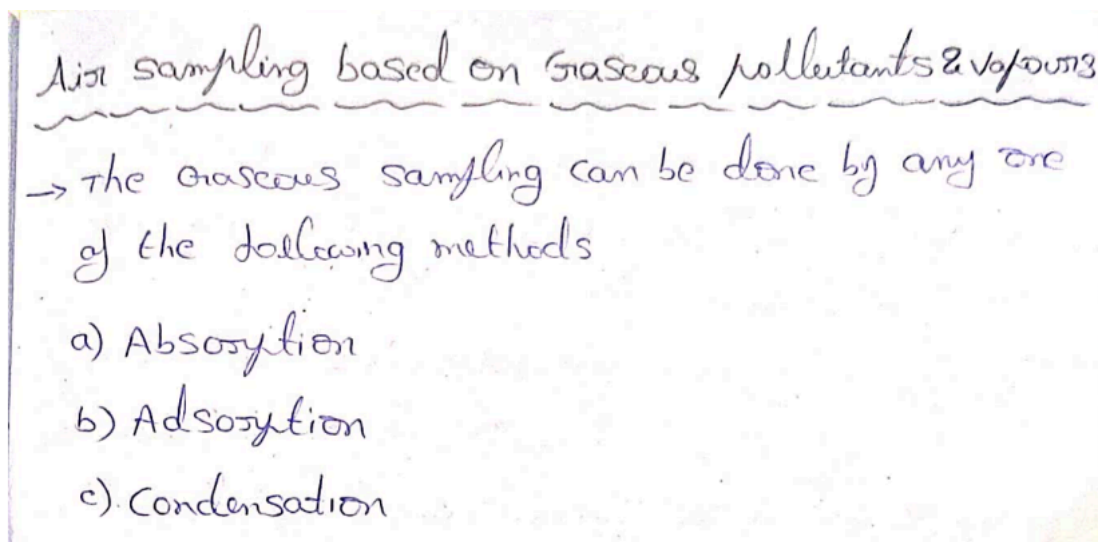 Air sampling based on Gaseous pollutants & vapours
→ The Gaseous sampling can be done by any one
of the following methods
a) Absorption
b) Adsorption
c) Condensation